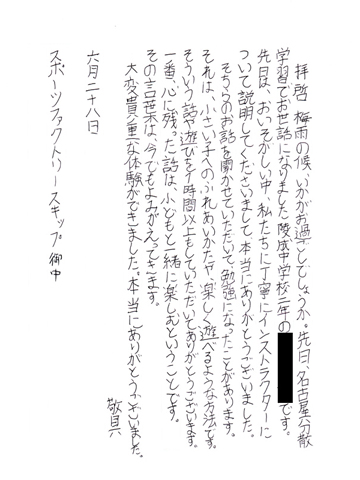 拝啓 梅雨の候、いかがお過ごしでしょうか。先日、名古屋分散
学習でお世話になりました陵成中学校二年の です。
先日は、おいそがしい中、私たちに丁寧にインストラクターに
ついて説明してくださいまして本当にありがとうございました。
そちらのお話を聞かせていただいて、勉強になったことがあります。
それは、小さい子へのふれあいかたや、楽しく遊べるような方法です。
そういう話や遊びを1時間以上もしていただいてありがとうございます。
一番、心に残った話は、小どもと一緒に楽しむということです。
その言葉は、今でもよみがえってきます。
大変貴重な体験ができました。本当にありがとうございました。
敬具
六月二十八日
スポーツファクトリースキップ 御中